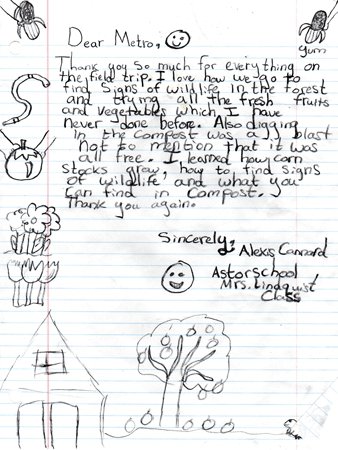 Dear Metro,
yum
Thank you so much for everything on
the field trip. I love how we go to
find signs of wildlife in the forest
and trying all the fresh fruits
and vegetables which I have
never done before. Also digging
in the compost was a blast
Not so mention that it was
all free. I learned how corn
stocks grow, how to find signs
of wildlife and what you
can find in compost.
Thank you again.
Sincerely,
Alexis Cannard
Astor school
Mrs. Lindquist
Class